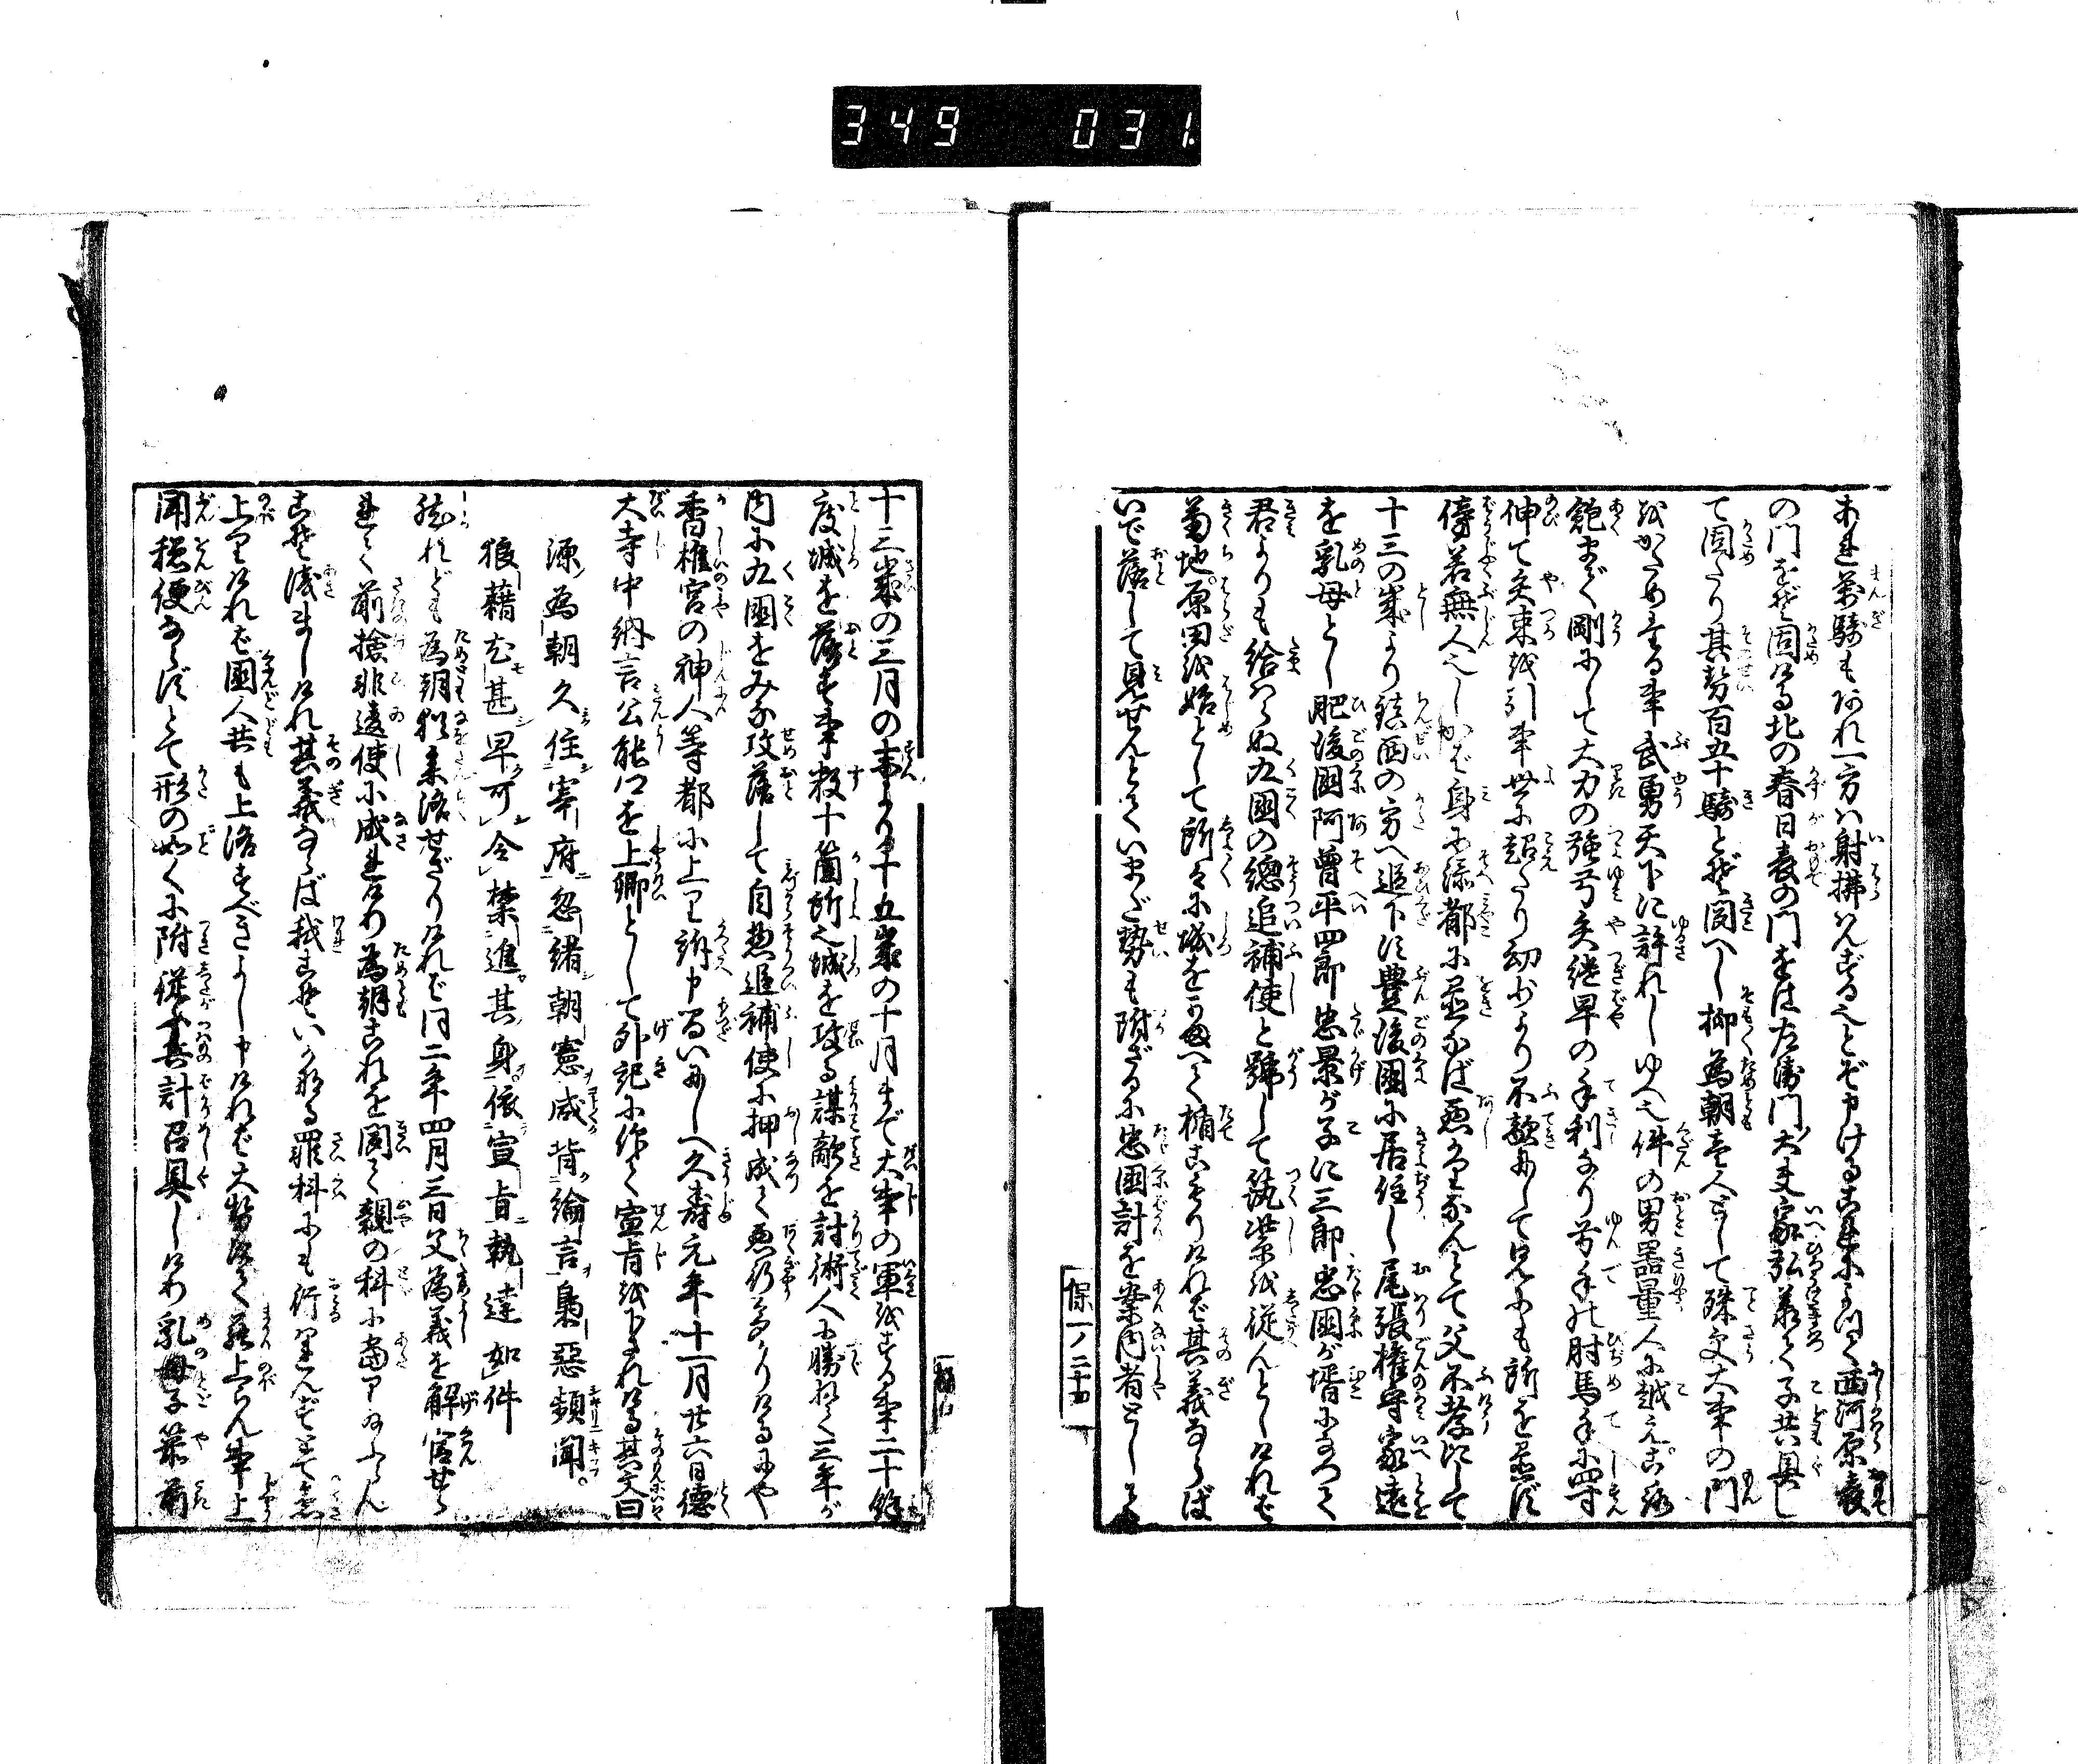 349 031.
まれ萬騎もあれ一方ハ射拂はんずる也とぞ申けるこれによつて西河原表
の門をぞ固ける北の春日表の門をは左衛門大夫家弘承て子共具し
て固たり其勢百五十騎とぞ聞へし抑為朝一人として殊更大事の門
をかためたる事武勇天下に許れしゆへ也件の男器量人に越え心飽
飽まで剛にして大力の強弓矢継早の手利なり弓手の肘馬手に四寸
伸て矢束を引事世に超たり幼少より不敵にして兄にも所を置ず
傍若無人也しかば身に添都に置なば悪かりなんとて父不孝にして
十三の歳より鎮西の方へ追下す豊後國に居住し尾張権守家遠
を乳母とし肥後國阿曽平四郎忠景が子に三郎忠國が壻になつて
君よりも給はらぬ九國の總追補使と號して筑紫を従んとしければ
菊地原田を始として所々に城をかまへて楯こもりければ其義ならば
いで落して見せんとていまだ勢も附ざるに忠国計を案内者として
保一ノ二十五
十三歳の三月の末より十五歳の十月まで大事の軍をする事二十餘
度城を落す事数十箇所也城を攻る謀敵を討術人に勝れて三年が
内に九國をみな攻落して自惣追補使に押成て悪行多かりけるにや
香椎宮の神人等都に上り訴申あいだいにし久壽元年十一月廿六日徳
大寺中納言公能卿を上卿として外記に作て宣旨を下されける其文曰
源為朝久住宰府忽緒朝憲咸背綸言梟惡頻聞。
狼藉尤甚早可令禁進其身依宣旨執達如件
然れども為朝猶参洛せざりければ同二年四月三日父為義を解官せら
れて前檢非違使に成れけり為朝これを聞て親の科に當り給ふらん
こそ淺ましけれ其義ならば我こそいかなる罪科にも行はれんずとて急
上りければ國人共も上洛すべきよし申ければ大勢にて罷上らん事上
聞穏便ならずとて形の如くに附従兵計召具しけり乳母子箭前